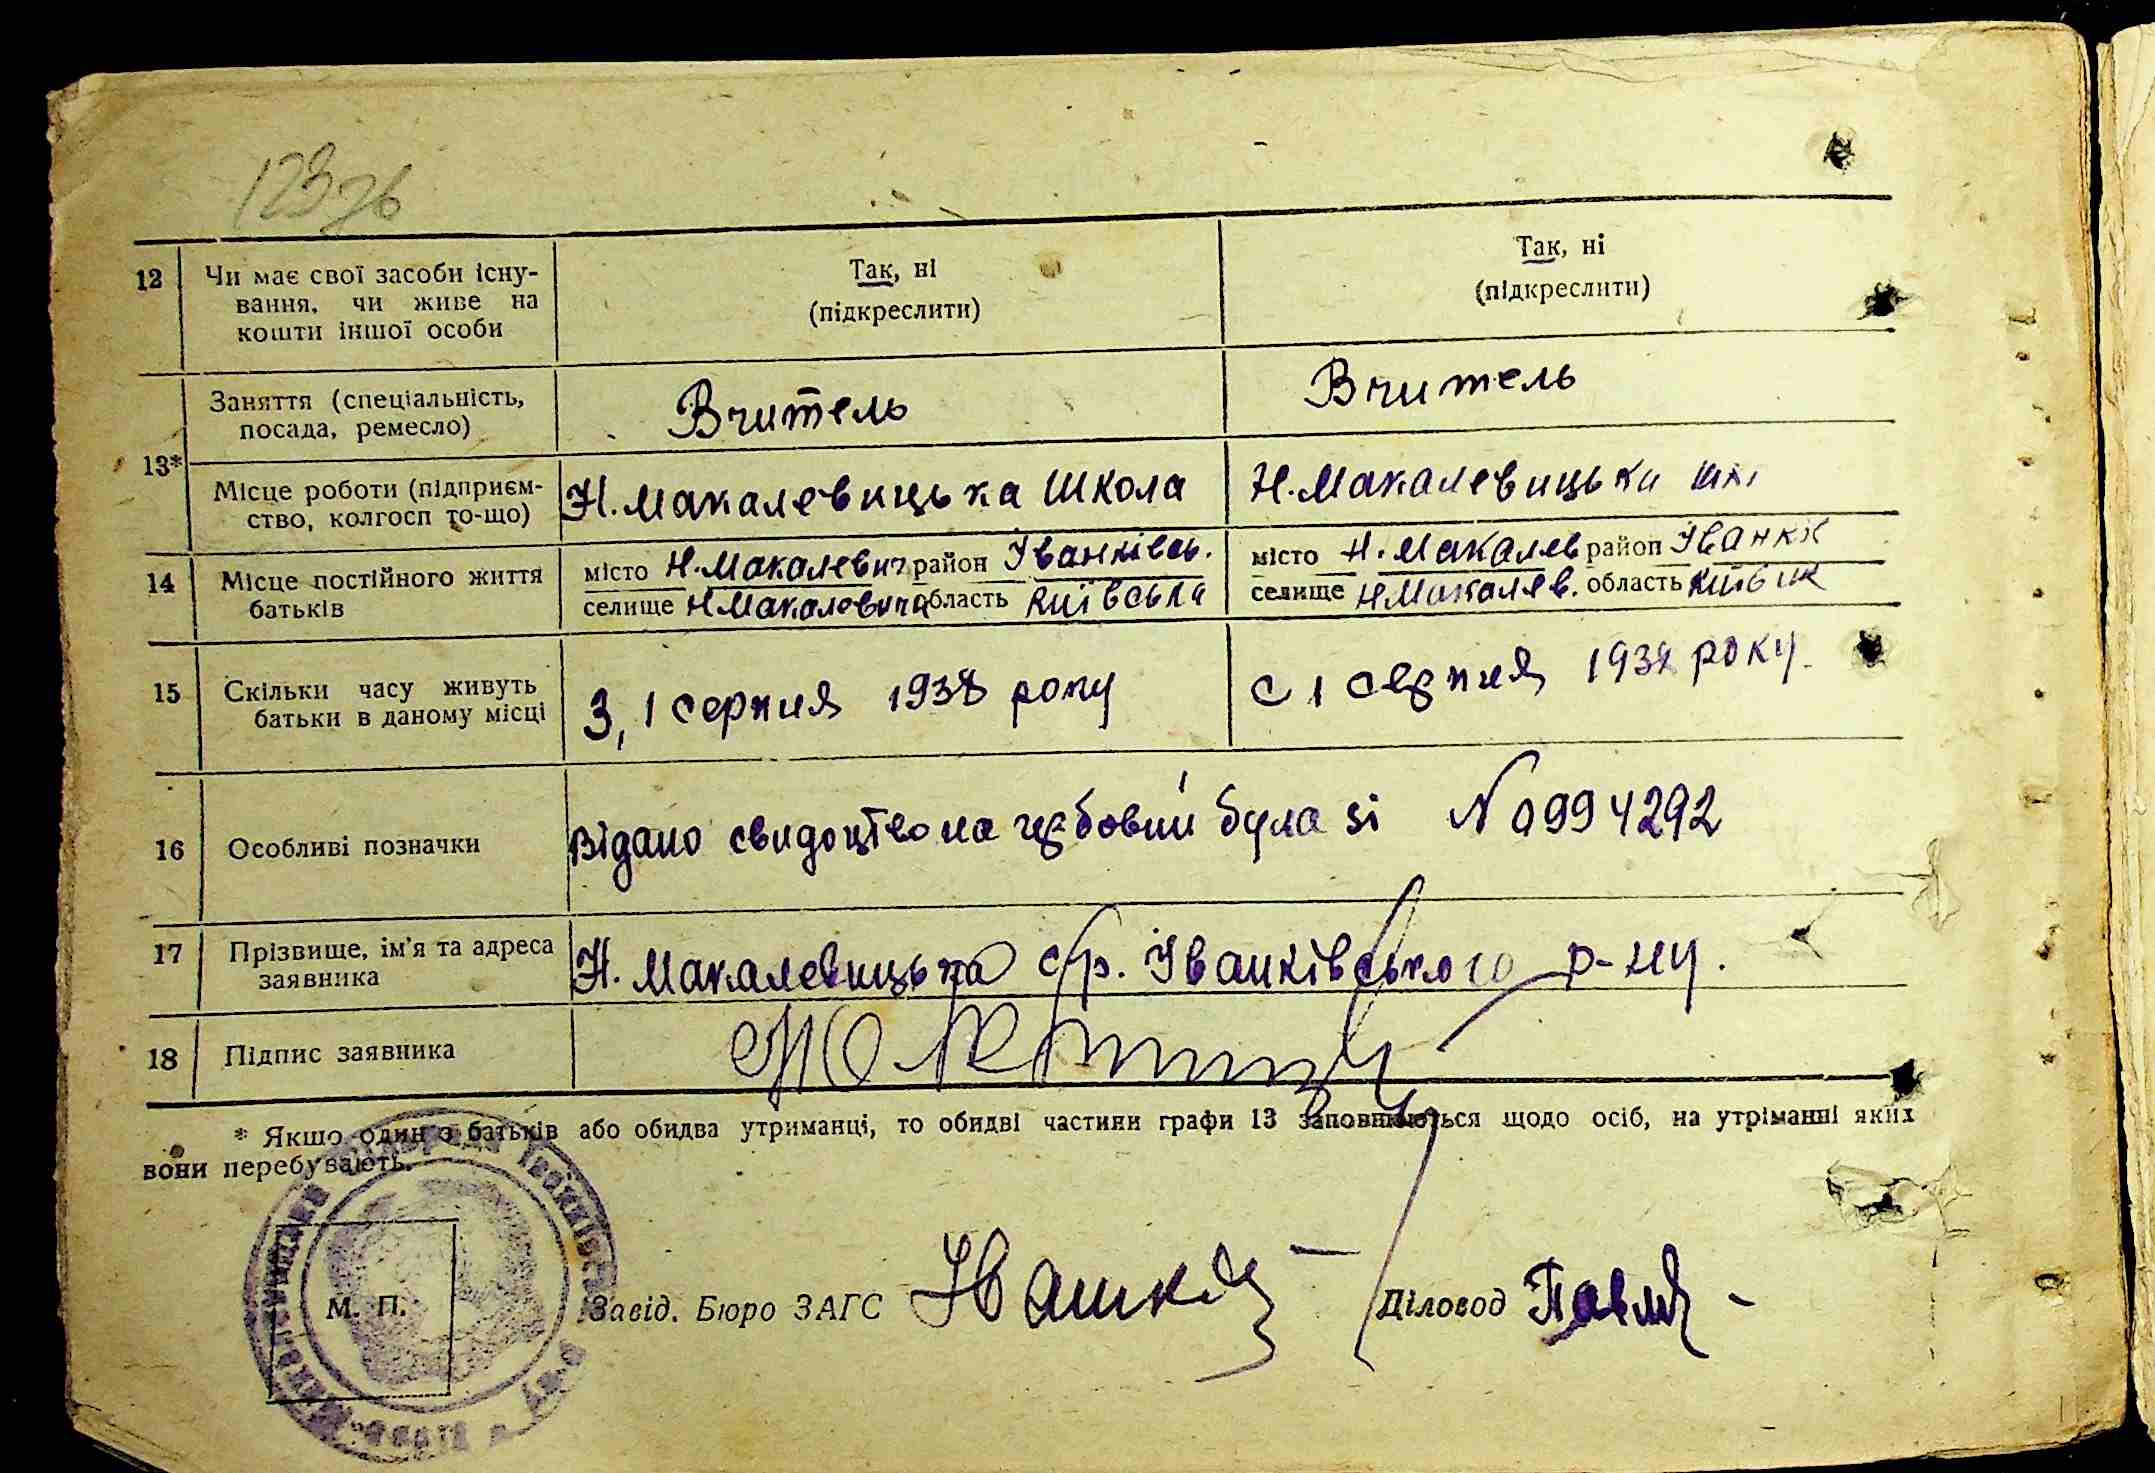 12376
12 Чи має свої засоби існу-
вання, чи живе на
кошти іншої особи
Так, ні
(підкреслити)
Так, ні
(підкреслити)
13*
Заняття (спеціальність,
посада, ремесло)
Вчитель
Вчитель
Місце роботи (підприєм-
ство, колгосп то-що)
Н. Макалевицька школа
Н. Макалевицька
14 Місце постійного життя
батьків
місто Н. Макалевич район Іванківсь.
селище Н Макалевича область Київська
місто Н. Макалев район Іванк
селище Н Макалев. область
15 Скільки часу живуть
батьки в даному місці
З, 1 серпня 1938 року
С 1 серпня 1938 року.
16 Особливі позначки
Видано свидоцтво на гербовий SI № 0994292
17 Прізвище, ім'я та адреса
заявника
Н. Макалевицька с/р. Іванківського р-ну.
18 Підпис заявника
* Якщо один з батьків або обидва утриманці, то обидві частини графи 13 заповнюються щодо осіб, на утріманні яких
вони перебувають.
М. П.
Завід. Бюро ЗАГС
Діловод